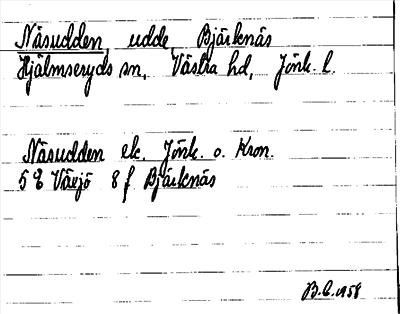 Näsudden, udde, Bjärknäs
Hjälmseryds sn, Västra hd, Jönk. l.
Näsudden ek. Jönk. o. Kron.
5 E Växjö 8 f Bjärknäs
B.E. 1958